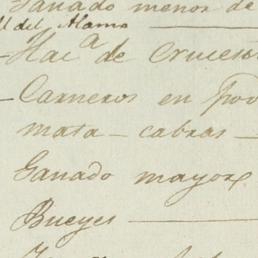 Ganado menor de
del Alamo
Hac.ª de Cruces
Carneros en
mata - cabras
Ganado mayor
Bueyes